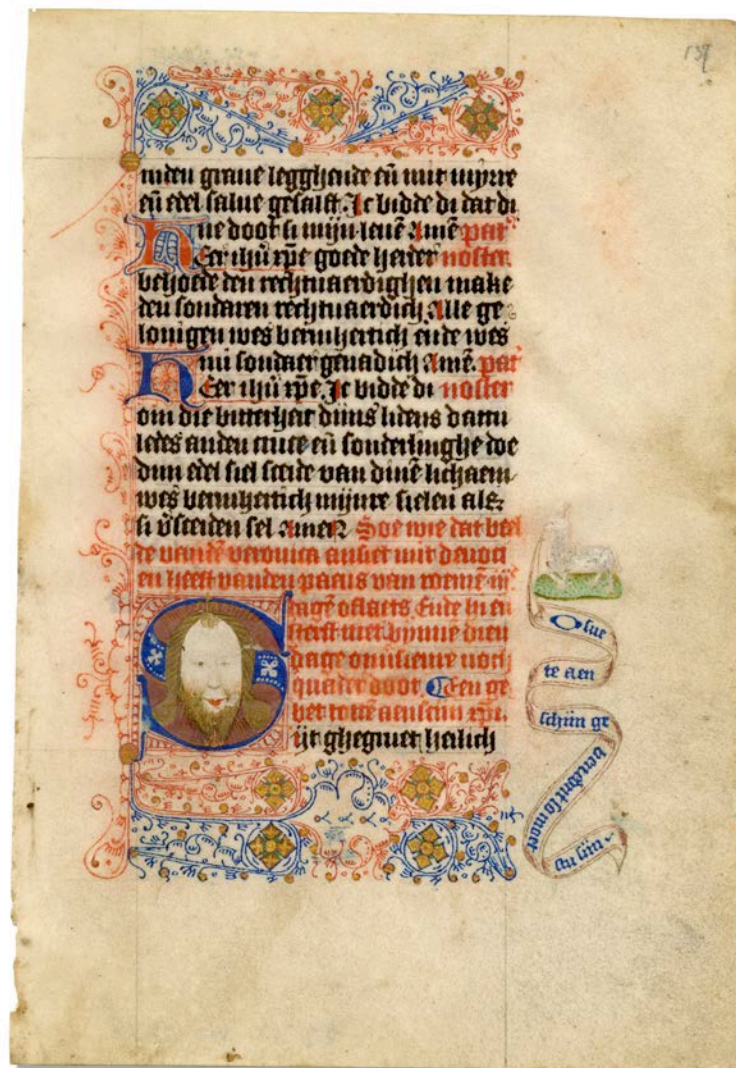 137
inden graue legghende eñ mit myrre
eñ edel salue gesalft. Ic bidde di dat di
ne doot si mijn leuē Amē pat̄
Heer ihū xp̄e goede herder noster.
behoede den rechtuaerdighen make
den sondaren rechtuaerdich Alle ge
louigen wes bermhertich ende wes
mi sondaer genadich Amē. pat̄
Heer ihū xp̄e. Ic bidde di noster
om die bitterheit dijns lidens dattu
ledes anden cruce eñ sonderlinghe doe
dijn edel siel sceide van dinē lichaem
wes bermhertich mijnre sielen als
si v̄sceiden sel Amen Soe wie dat beel
de vandē veronica ansiet mit deuoci
en heeft vanden paeus van romē
dagē oflaets. Ende hi en
sterft niet bynnē dien
dage onuersienre noch
quader doot. Een ge
bet tottē aenscijn xp̄i.
Sijt ghegruet heilich
O sue
te aen
schijn ge
benedijt so moet
stu sijn